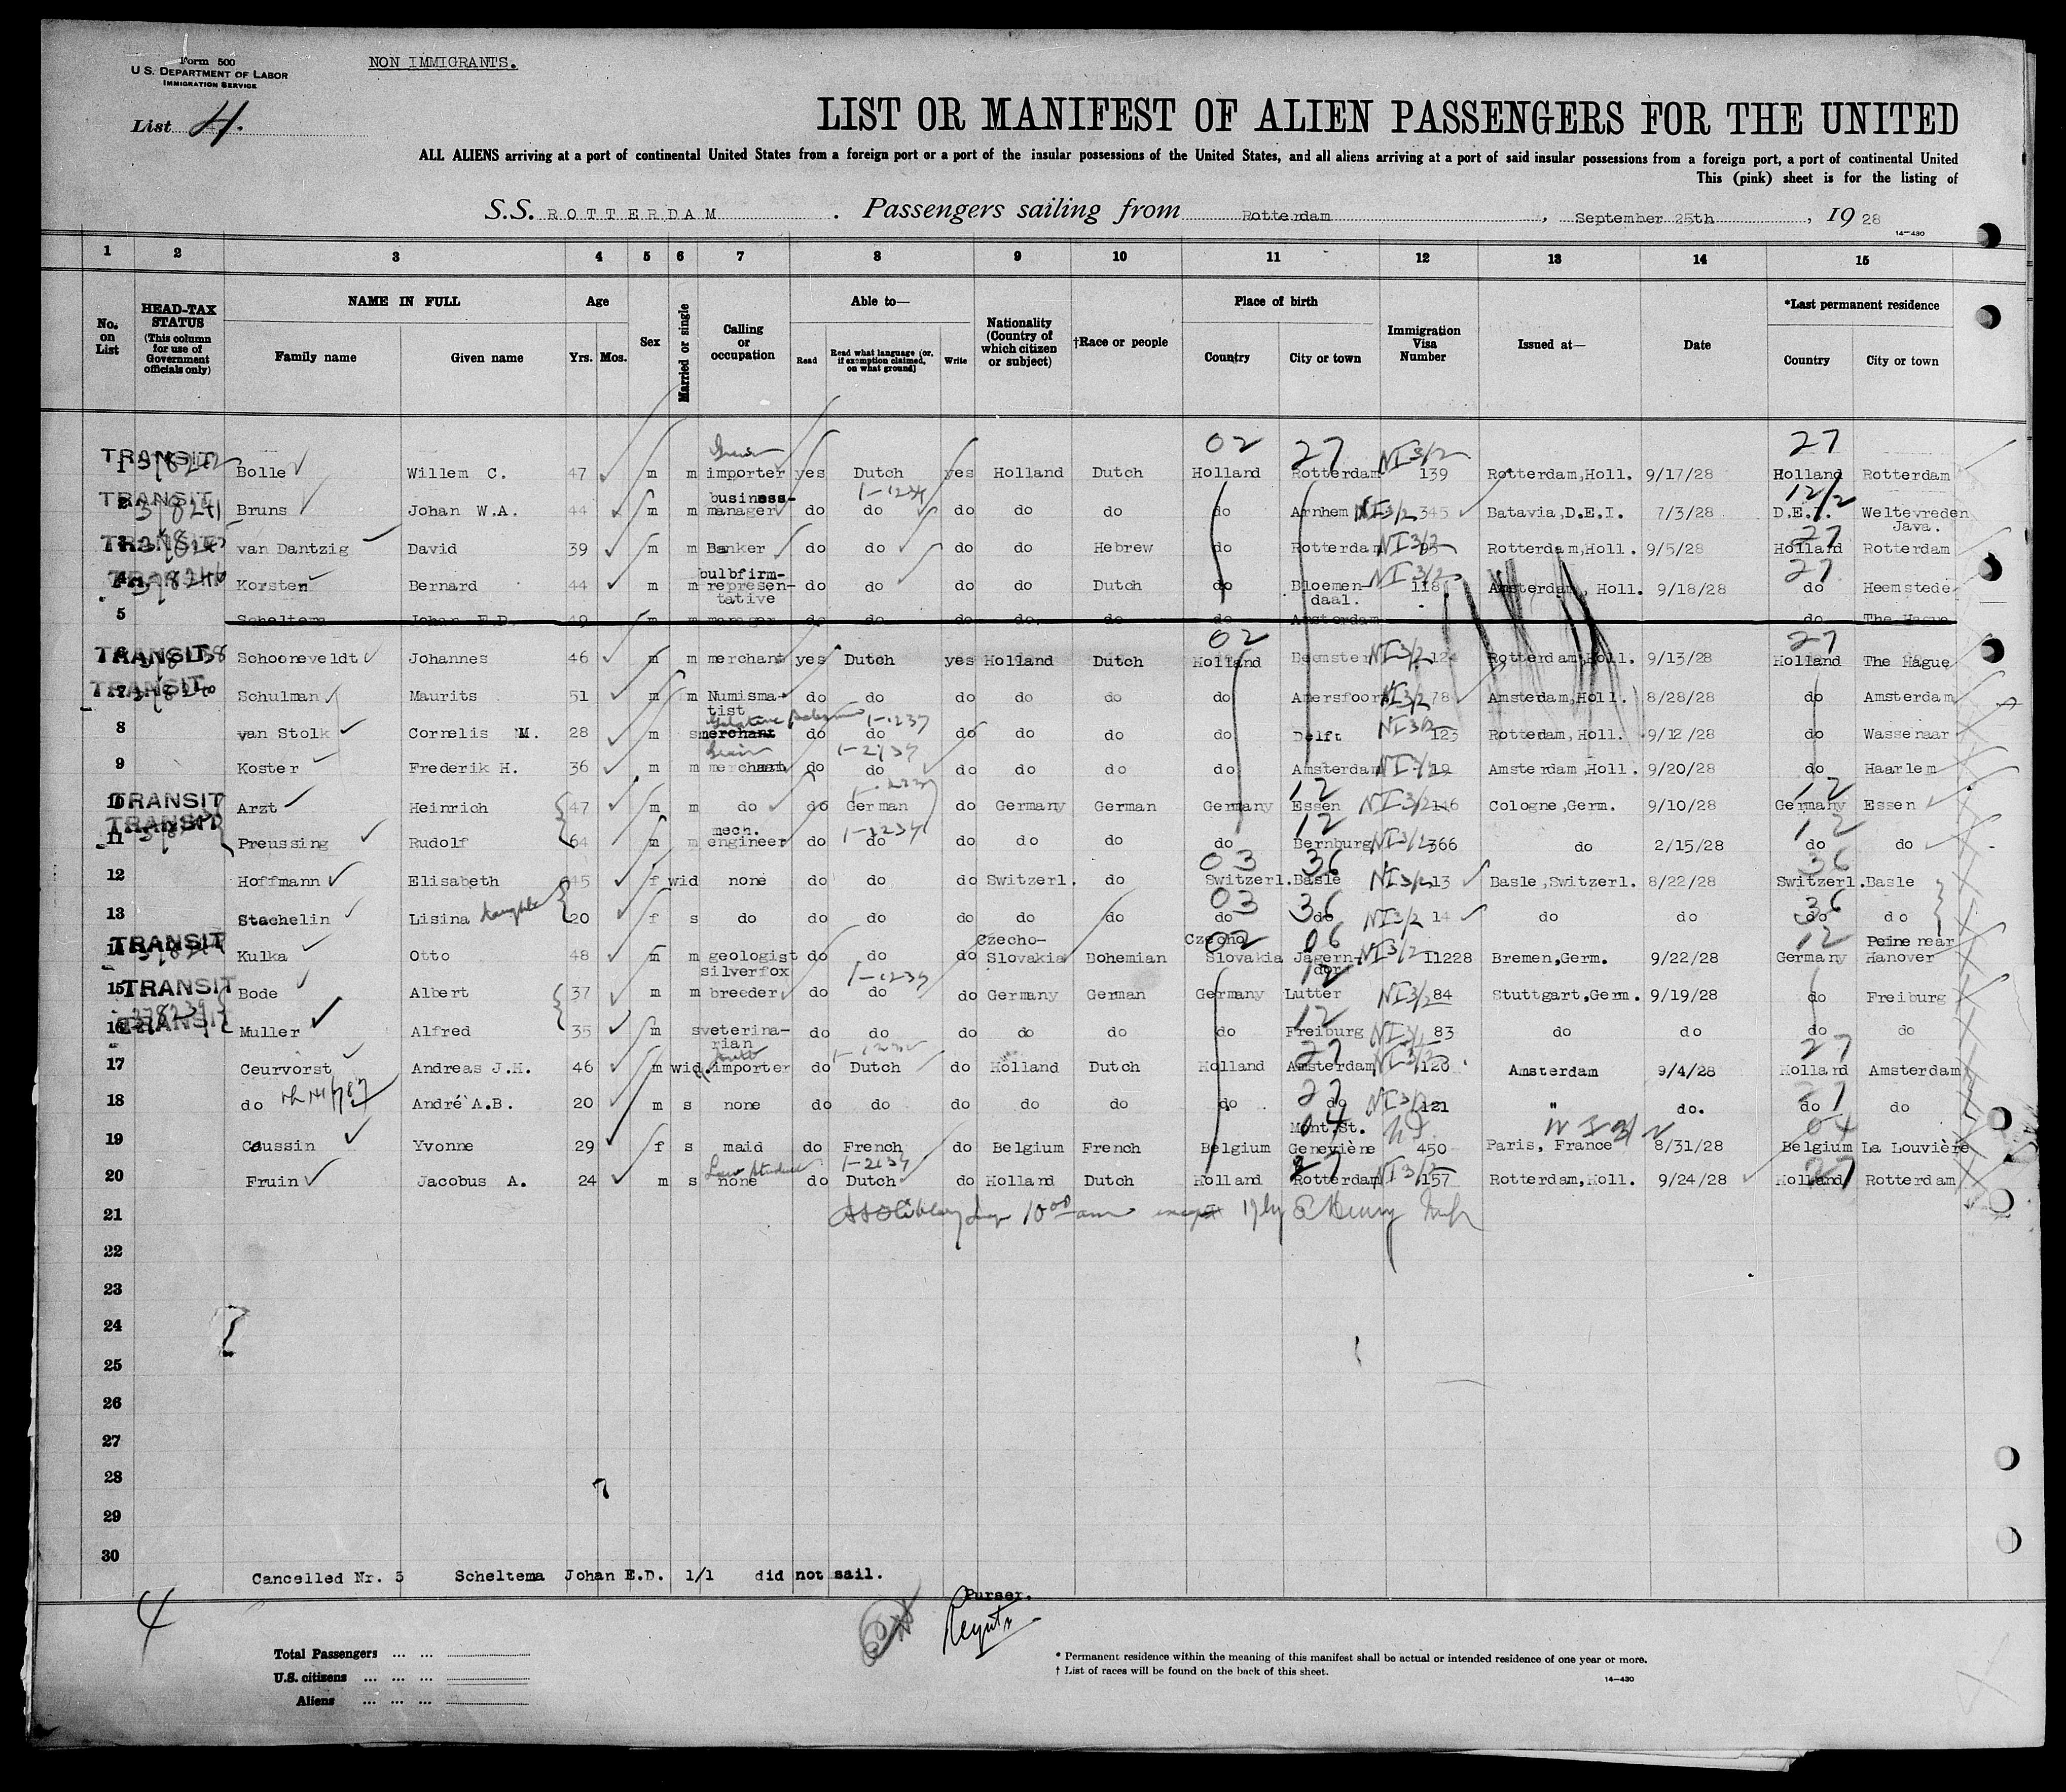 Form 500
U. S. DEPARTMENT OF LABOR
IMMIGRATION SERVICE
NON IMMIGRANTS.
List 4.
LIST OR MANIFEST OF ALIEN PASSENGERS FOR THE UNITED
ALL ALIENS arriving at a port of continental United States from a foreign port or a port of the insular possessions of the United States, and all aliens arriving at a port of said insular possessions from a foreign port, a port of continental United
This (pink) sheet is for the listing of
S.S. ROTTERDAM . Passengers sailing from Rotterdam , September 25th , 19 28
14—430
1 2 3 4 5 6 7 8 9 10 11 12 13 14 15
No. on List
HEAD-TAX STATUS (This column for use of Government officials only)
NAME IN FULL
Family name Given name
Age
Yrs. Mos.
Sex
Married or single
Calling or occupation
Able to—
Read Read what language (or, if exemption claimed, on what ground) Write
Nationality (Country of which citizen or subject)
†Race or people
Place of birth
Country City or town
Immigration Visa Number
Issued at—
Date
*Last permanent residence
Country City or town
02 27 27
TRANSIT Bolle Willem C. 47 m m importer yes Dutch yes Holland Dutch Holland Rotterdam NI 3/2 139 Rotterdam,Holl. 9/17/28 Holland Rotterdam
TRANSIT 2 Bruns Johan W.A. 44 m m business-manager do do do do do do Arnhem NI 3/2 345 Batavia,D.E.I. 7/3/28 D.E.I. Weltevreden Java.
TRANSIT 3 van Dantzig David 39 m m Banker do do do do Hebrew do Rotterdam NI 3/2 Rotterdam,Holl. 9/5/28 27 Holland Rotterdam
4 Korsten Bernard 44 m m bulbfirm-represen-tative do do do do Dutch do Bloemen-daal. NI 3/2 118 Amsterdam, Holl. 9/18/28 27 do Heemstede
5 Scheltema Johan E.D. 49 m m manager do do do do do do Amsterdam do The Hague
02 27
TRANSIT Schooneveldt Johannes 46 m m merchant yes Dutch yes Holland Dutch Holland Beemster NI 3/2 124 Rotterdam,Holl. 9/13/28 Holland The Hague
TRANSIT 7 Schulman Maurits 51 m m Numisma-tist do do do do do do Amersfoort NI 3/2 78 Amstedam,Holl. 8/28/28 do Amsterdam
8 van Stolk Cornelis M. 28 m s merchant do do do do do do Delft NI 3/2 123 Rottedam,Holl. 9/12/28 do Wassenaar
9 Koster Frederik H. 36 m m merchant do do do do do do Amsterdam NI 3/2 19 Amsterdam,Holl. 9/20/28 do Haarlem
TRANSIT 10 Arzt Heinrich 47 m m do do German do Germany German Germany 12 Essen NI 3/2 146 Cologne,Germ. 9/10/28 12 Germany Essen
TRANSIT 11 Preussing Rudolf 64 m m mech. engineer do do do do do do 12 Bernburg NI 3/2 366 do 2/15/28 12 do do
12 Hoffmann Elisabeth 45 f wid none do do do Switzerl. do 03 Switzerl. 36 Basle NI 3/2 13 Basle,Switzerl. 8/22/28 36 Switzerl. Basle
13 Staehelin Lisina daughter 20 f s do do do do do do 03 do 36 do NI 3/2 14 do do 36 do do
TRANSIT 14 Kulka Otto 48 m m geologist do do do Czecho-Slovakia Bohemian 02 Czecho Slovakia 06 Jägern-dorf NI 3/2 11228 Bremen,Germ. 9/22/28 12 Germany Peine near Hanover
15 TRANSIT Bode Albert 37 m m silverfox breeder do do do Germany German Germany 12 Lutter NI 3/2 84 Stuttgart,Germ. 9/19/28 do Freiburg
16 TRANSIT Muller Alfred 35 m s veterina-rian do do do do do do 12 Freiburg NI 3/2 83 do do do do
17 Ceurvorst Andreas J.H. 46 m wid. importer do Dutch do Holland Dutch Holland 27 Amsterdam NI 3/2 120 Amsterdam 9/4/28 27 Holland Amsterdam
18 do André A.B. 20 m s none do do do do do do 27 do NI 3/2 121 " do. 27 do do
19 Caussin Yvonne 29 f s maid do French do Belgium French Belgium 04 Mont.St. Geneviène 450 Paris, France 8/31/28 04 Belgium La Louvière
20 Fruin Jacobus A. 24 m s none Law Student do Dutch do Holland Dutch Holland 27 Rotterdam NI 3/2 157 Rotterdam,Holl. 9/24/28 27 Holland Rotterdam
21
22
23
24
25
26
27
28
29
30
Cancelled Nr. 5 Scheltema Johan E.D. 1/1 did not sail.
Purser.
4
Total Passengers ... ...
U.S. citizens ... ... ...
Aliens ... ... ...
* Permanent residence within the meaning of this manifest shall be actual or intended residence of one year or more.
† List of races will be found on the back of this sheet.
14—430